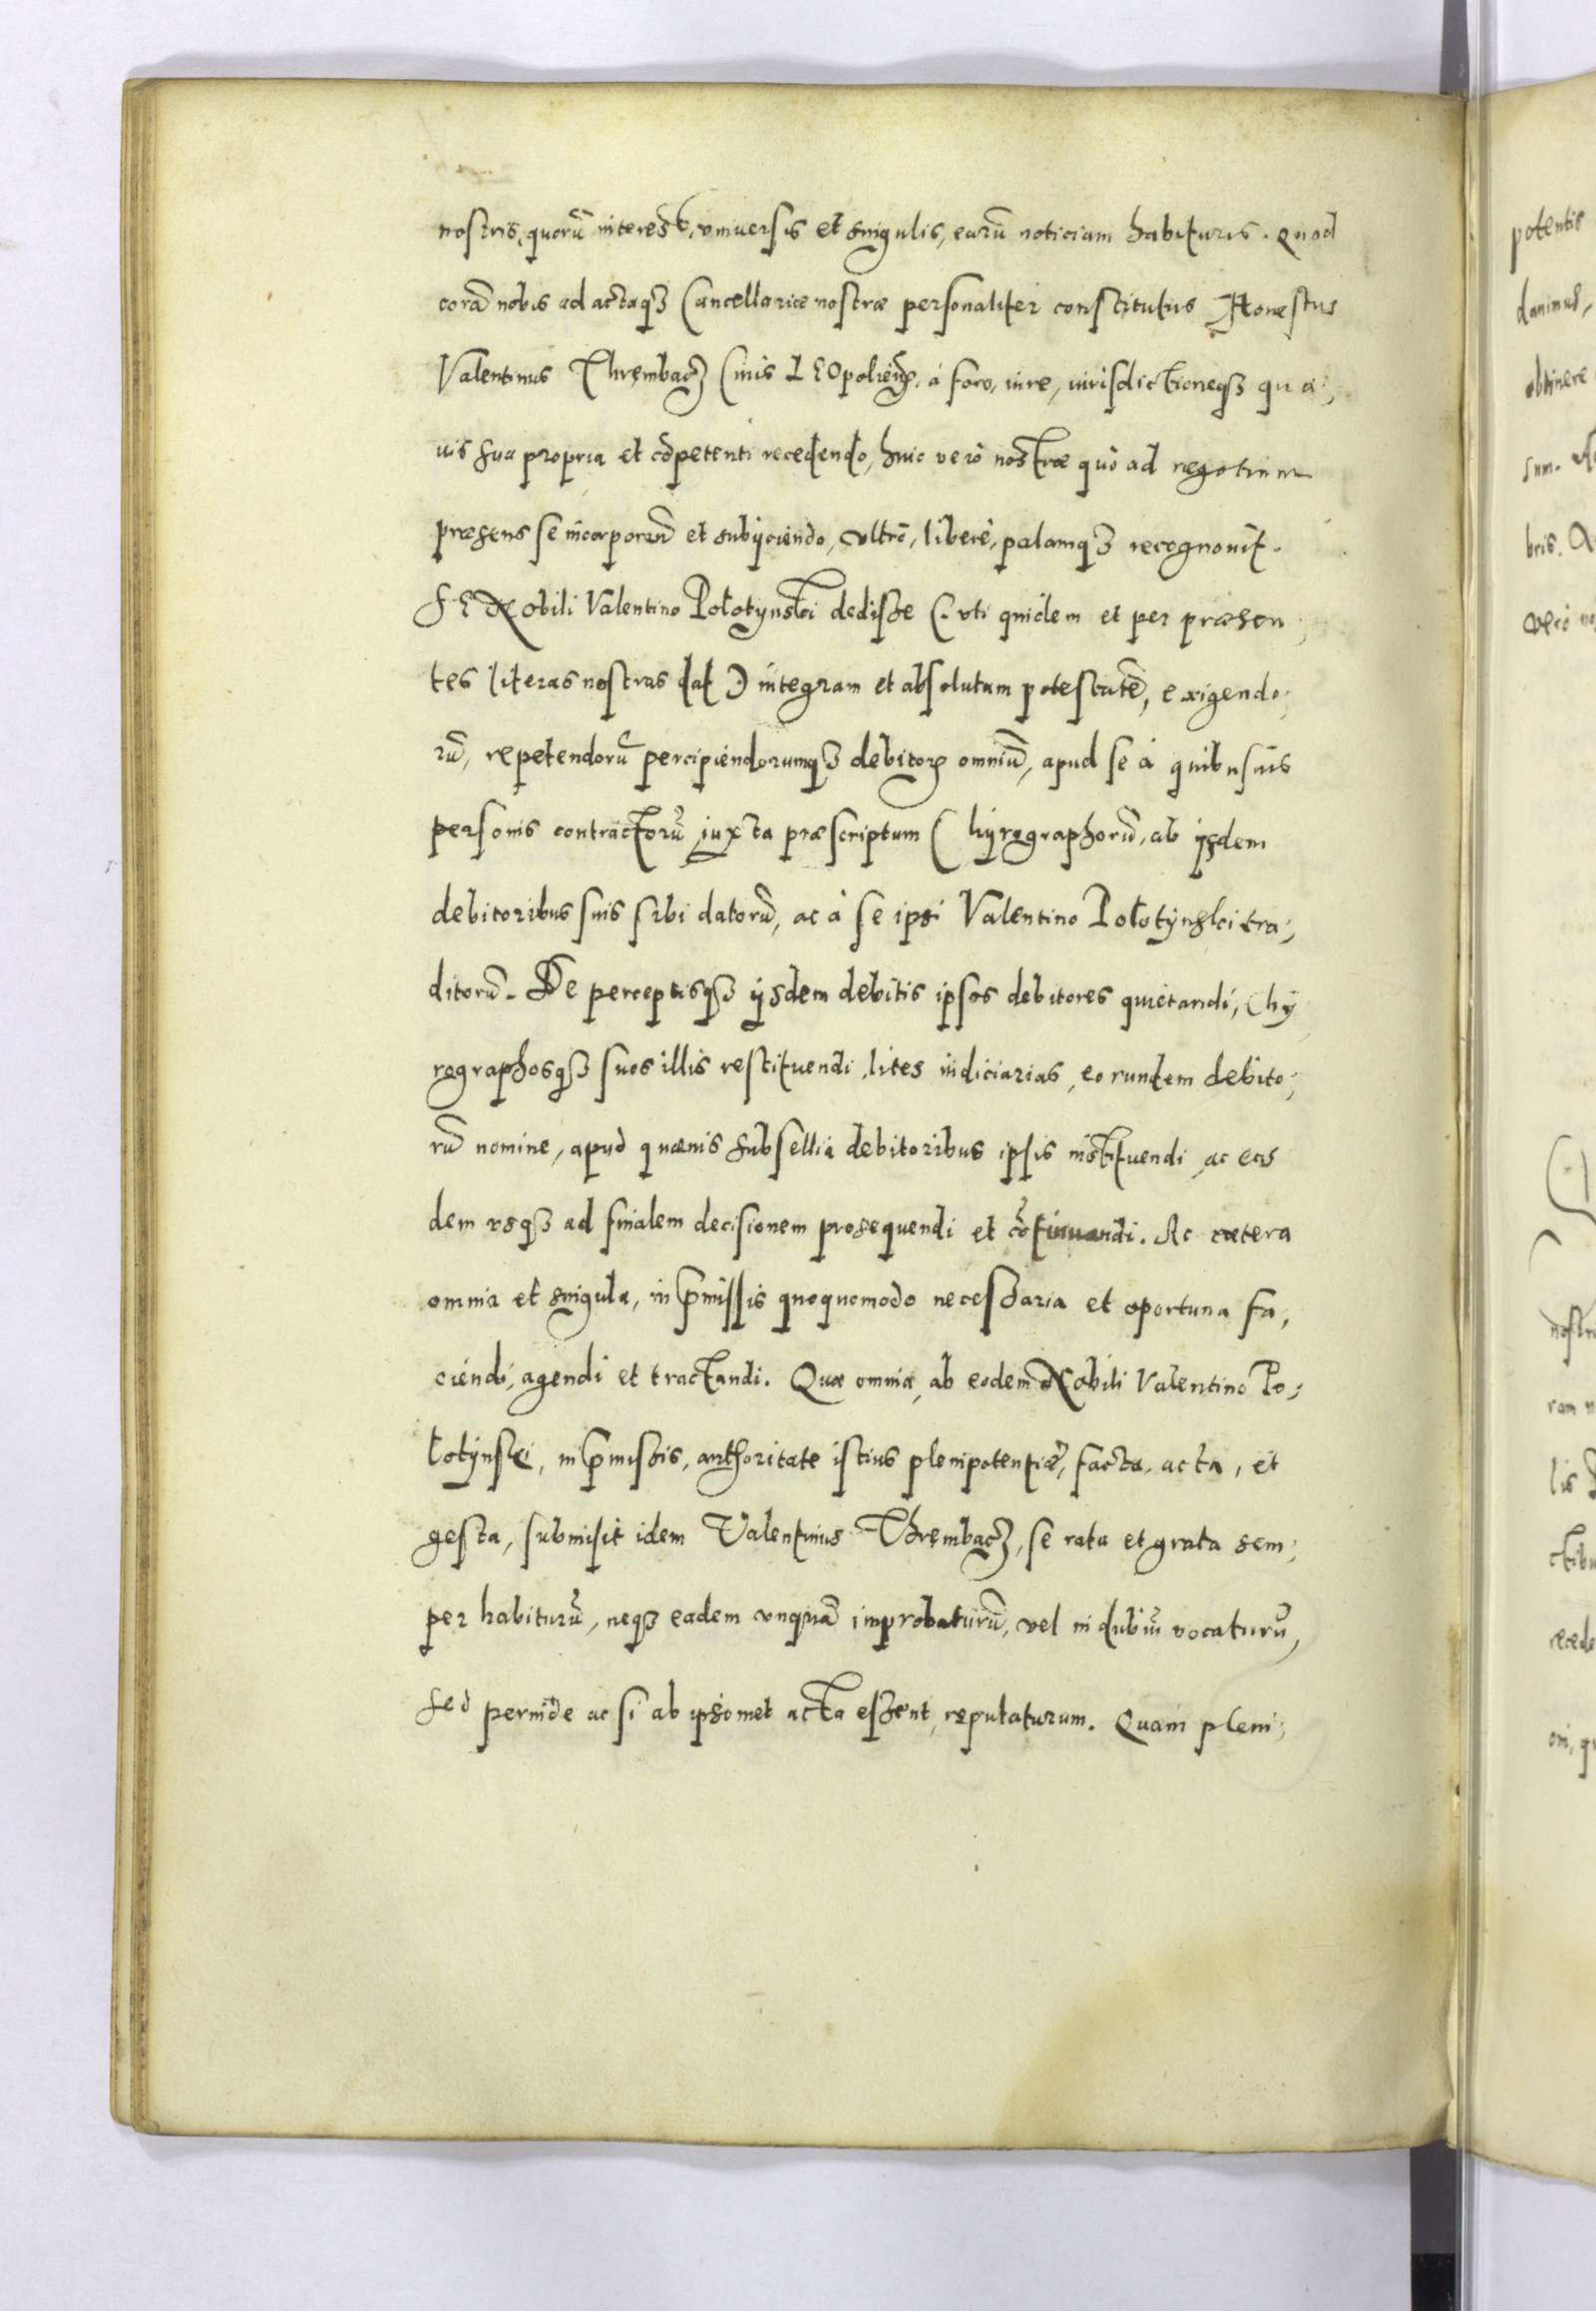 nostris, quorũ interest, vniuersis et singulis, earũ noticiam habituris. Quod
corã nobis ad actaqꝫ Cancellariæ nostræ personaliter constitutus Honestus
Valentinus Thręmbacz Ciuis LEOpolieñ. à foro, iure, iurisdictioneqꝫ qua,
uis sua propria et cõpetenti recedendo, huic verò nostræ quò ad negotium
præsens se incorporañ et subijciendo, vltrò, liberè, palamqꝫ recognouit.
SE Nobili Valentino Połotynski dedisse (: vti quidem et per præsen,
tes literas nostras dat :) integram et absolutam potestatẽ, exigendo,
rũ, repetendorũ percipiendorumqꝫ debitoꝝ omniũ, apud se à quibusuis
personis contractorũ iuxta præscriptum Chyrographorũ, ab ijsdem
debitoribus suis sibi datorũ, ac à se ipsi Valentino Połotynski tra,
ditorũ. De perceptisqꝫ ijsdem debitis ipsos debitores quietandi, Chy
rographosqꝫ suos illis restituendi, lites iudiciarias, eorundem debito,
rũ nomine, apud quæuis subsellia debitoribus ipsis instituendi, ac eas
dem vsqꝫ ad finalem decisionem prosequendi et cõtinuandi. Ac cætera
omnia et singula, in p̃missis quoquomodo necessaria et oportuna fa,
ciendi, agendi et tractandi. Quæ omnia, ab eodem Nobili Valentino Po,
łotynski, in p̃missis, authoritate istius plenipotentiæ, facta, acta, et
gesta, submisit idem Valentinus Thręmbacz, se rata et grata sem,
per habiturũ, neqꝫ eadem vnquã improbaturũ, vel in dubiũ vocaturũ,
sed perinde ac si ab ipsomet acta essent, reputaturum. Quam pleni,
potentis
danimus,
obtinere
sum.
bris.
verò
nostr
ram
lis
ctibu
recede